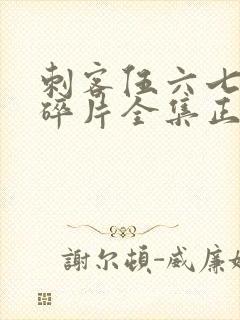 刺客伍六七
碎片全集正
謝尔頓-威廉